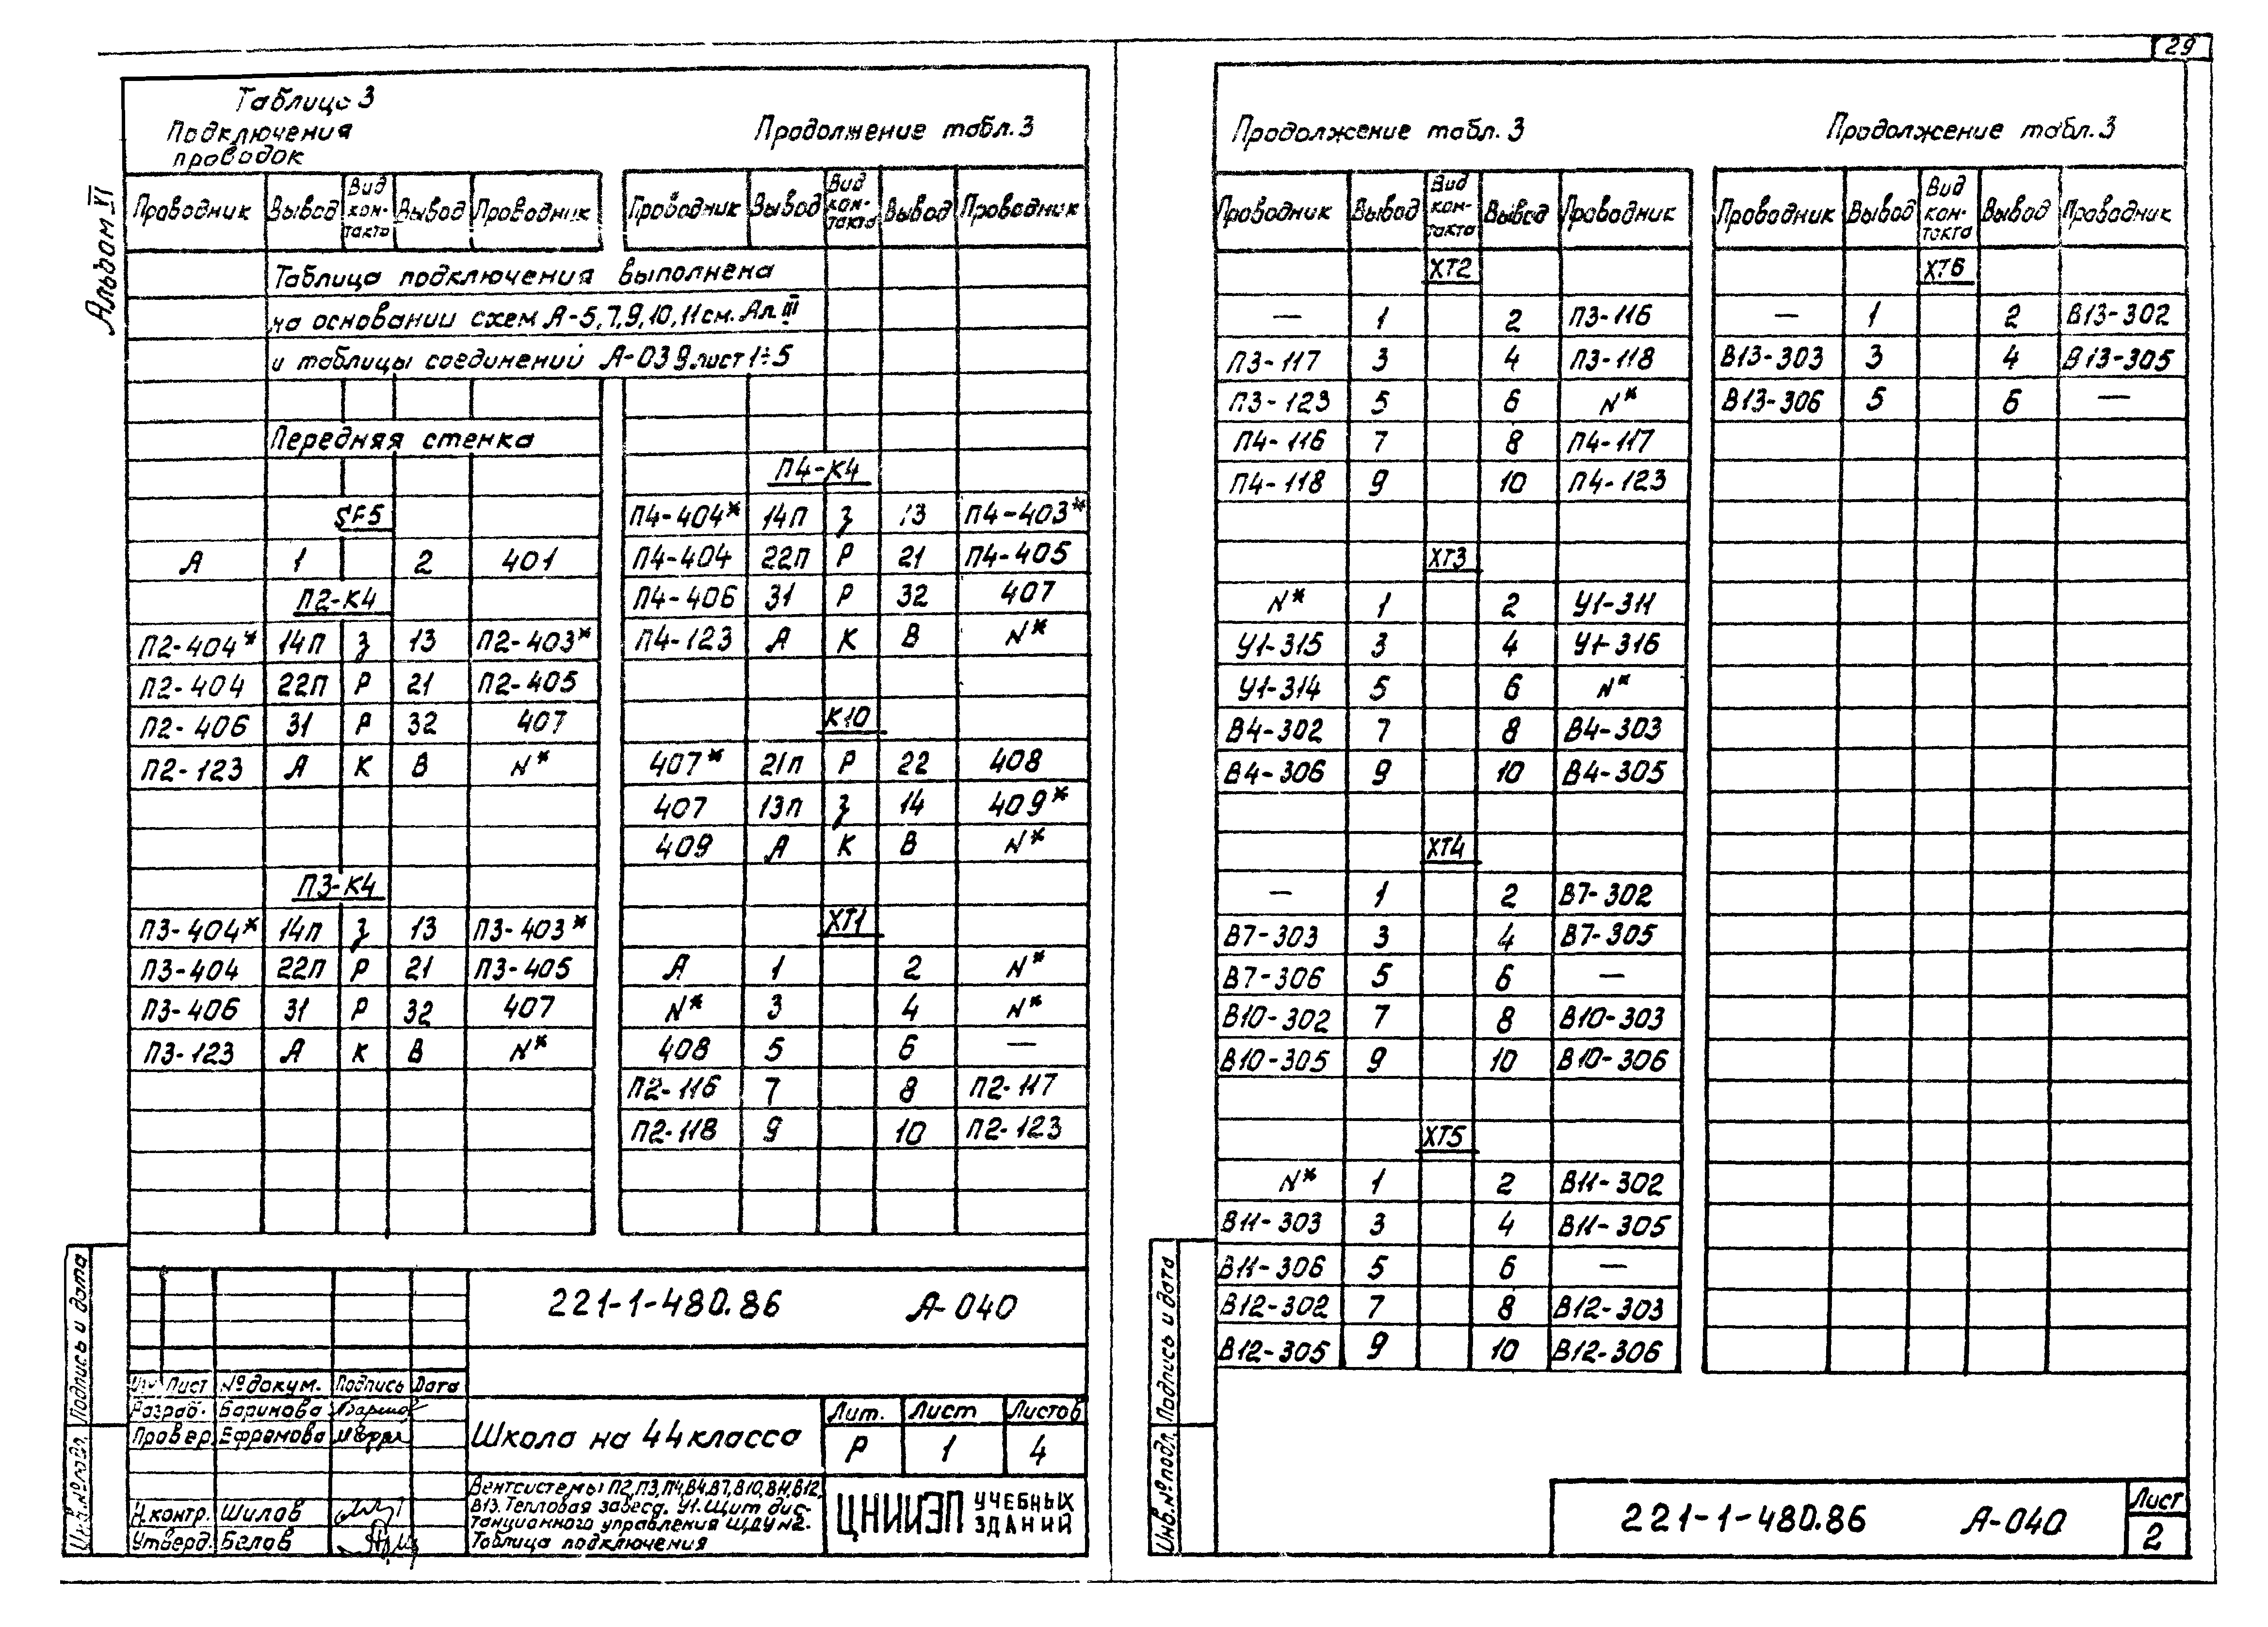 29
Альбом VI
Таблица 3
Подключения
проводок
Проводник Вывод Вид контакта Вывод Проводник
Таблица подключения выполнена
на основании схем А-5,7,9,10,11 см. Ал. III
и таблицы соединений А-039 лист 1÷5
Передняя стенка
SF5
А 1 2 401
П2-К4
П2-404* 14п З 13 П2-403*
П2-404 22п Р 21 П2-405
П2-406 31 Р 32 407
П2-123 А К В N*
П3-К4
П3-404* 14п З 13 П3-403*
П3-404 22п Р 21 П3-405
П3-406 31 Р 32 407
П3-123 А К В N*
Продолжение табл. 3
Проводник Вывод Вид контакта Вывод Проводник
П4-К4
П4-404* 14п З 13 П4-403*
П4-404 22п Р 21 П4-405
П4-406 31 Р 32 407
П4-123 А К В N*
К10
407* 21п Р 22 408
407 13п З 14 409*
409 А К В N*
ХТ1
А 1 2 N*
N* 3 4 N*
408 5 6 —
П2-116 7 8 П2-117
П2-118 9 10 П2-123
221-1-480.86 А-040
Изм Лист № докум. Подпись Дата
Разраб. Баринова
Провер. Ефремова
Н.контр. Шилов
Утверд. Белов
Школа на 44 класса
Лит. Лист Листов
Р 1 4
Вентсистемы П2,П3,П4,В4,В7,В10,В11,В12,
В13. Тепловая завеса. У1. Щит дис-
танционного управления ЩДУ №2.
Таблица подключения
ЦНИИЭП УЧЕБНЫХ ЗДАНИЙ
Подпись и дата
Инв.№ подл.
Продолжение табл. 3
Проводник Вывод Вид контакта Вывод Проводник
ХТ2
— 1 2 П3-116
П3-117 3 4 П3-118
П3-123 5 6 N*
П4-116 7 8 П4-117
П4-118 9 10 П4-123
ХТ3
N* 1 2 У1-311
У1-315 3 4 У1-316
У1-314 5 6 N*
В4-302 7 8 В4-303
В4-306 9 10 В4-305
ХТ4
— 1 2 В7-302
В7-303 3 4 В7-305
В7-306 5 6 —
В10-302 7 8 В10-303
В10-305 9 10 В10-306
ХТ5
N* 1 2 В11-302
В11-303 3 4 В11-305
В11-306 5 6 —
В12-302 7 8 В12-303
В12-305 9 10 В12-306
Продолжение табл. 3
Проводник Вывод Вид контакта Вывод Проводник
ХТ6
— 1 2 В13-302
В13-303 3 4 В13-305
В13-306 5 6 —
Подпись и дата
Инв.№ подл.
221-1-480.86 А-040
Лист
2